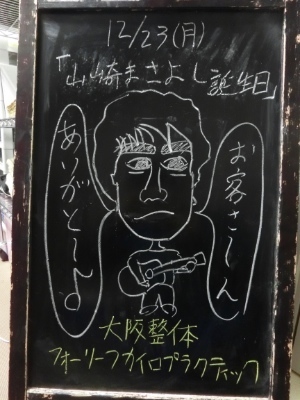 12/23(月)
「山崎まさよし誕生日」
お客さ〜ん
ありがと〜よ
大阪整体
フォーリーフカイロプラクティック